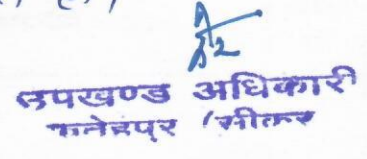 उपखण्ड अधिकारी
फतेहपुर (सीकर